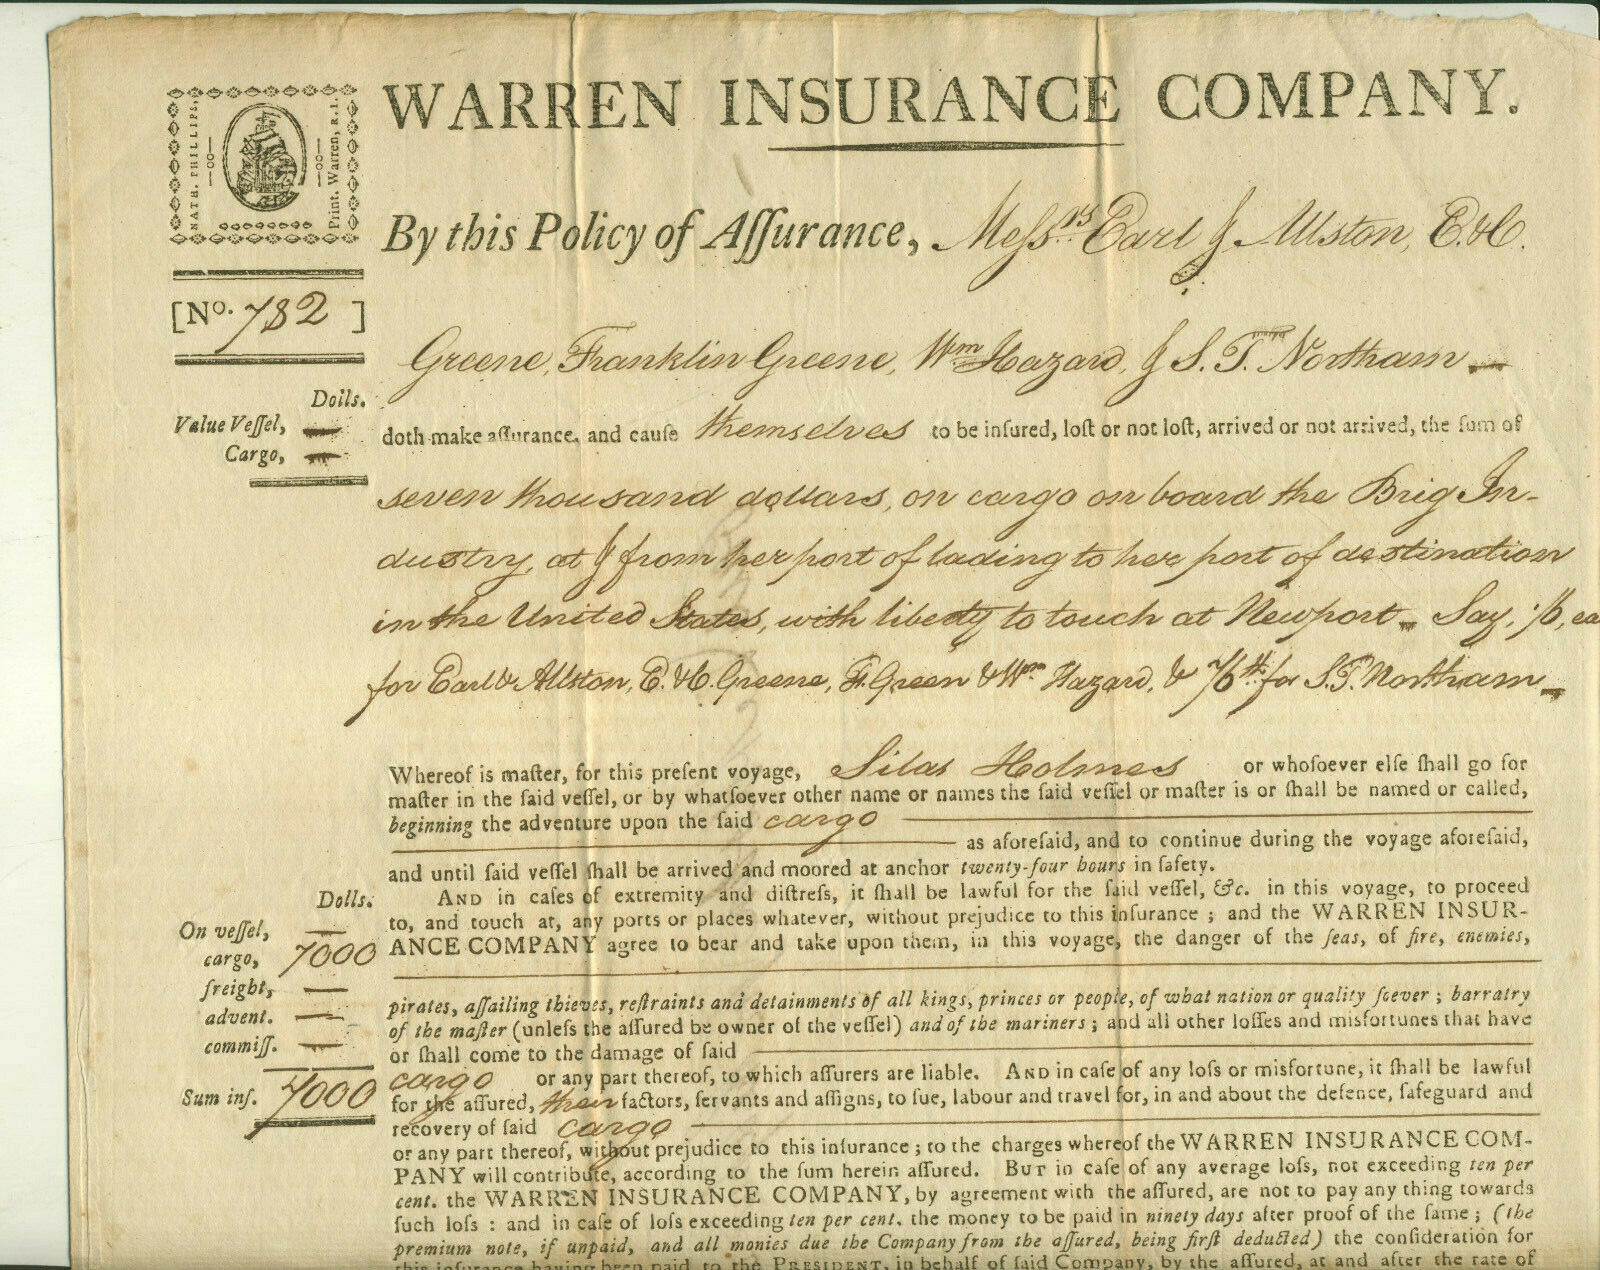 WARREN INSURANCE COMPANY.
NATH. PHILLIPS,
Print. Warren, R.I.
By this Policy of Aſſurance, Meſsrs. Earl & Allston, E. & C.
[No. 782 ]
Greene, Franklin Greene, Wm Hazard, & S. T. Northam
Dolls.
Value Veſſel,
Cargo,
doth make aſſurance, and cauſe themselves to be inſured, loſt or not loſt, arrived or not arrived, the ſum of
seven thousand dollars, on cargo on board the Brig In-
dustry, at & from her port of lading to her port of destination
in the United States, with liberty to touch at Newport. Say, 1/6, ea
for Earl & Allston, E. & C. Greene, F. Green & Wm Hazard, & 2/6th for S. T. Northam
Whereof is maſter, for this preſent voyage, Silas Holmes or whoſoever elſe ſhall go for
maſter in the ſaid veſſel, or by whatſoever other name or names the ſaid veſſel or maſter is or ſhall be named or called,
beginning the adventure upon the ſaid cargo
as aforeſaid, and to continue during the voyage aforeſaid,
and until ſaid veſſel ſhall be arrived and moored at anchor twenty-four hours in ſafety.
AND in caſes of extremity and diſtreſs, it ſhall be lawful for the ſaid veſſel, &c. in this voyage, to proceed
to, and touch at, any ports or places whatever, without prejudice to this inſurance ; and the WARREN INSUR-
ANCE COMPANY agree to bear and take upon them, in this voyage, the danger of the ſeas, of fire, enemies,
Dolls.
On veſſel,
cargo, 7000
freight,
advent.
commiſſ.
Sum inſ. 7000
pirates, aſſailing thieves, reſtraints and detainments of all kings, princes or people, of what nation or quality ſoever ; barratry
of the maſter (unleſs the aſſured be owner of the veſſel) and of the mariners ; and all other loſſes and misfortunes that have
or ſhall come to the damage of ſaid
cargo or any part thereof, to which aſſurers are liable. AND in caſe of any loſs or misfortune, it ſhall be lawful
for the aſſured, their factors, ſervants and aſſigns, to ſue, labour and travel for, in and about the defence, ſafeguard and
recovery of ſaid cargo
or any part thereof, without prejudice to this inſurance ; to the charges whereof the WARREN INSURANCE COM-
PANY will contribute, according to the ſum herein aſſured. BUT in caſe of any average loſs, not exceeding ten per
cent. the WARREN INSURANCE COMPANY, by agreement with the aſſured, are not to pay any thing towards
ſuch loſs : and in caſe of loſs exceeding ten per cent. the money to be paid in ninety days after proof of the ſame ; (the
premium note, if unpaid, and all monies due the Company from the aſſured, being firſt deducted) the conſideration for
this inſurance having been paid to the PRESIDENT, in behalf of ſaid Company, by the aſſured, at and after the rate of